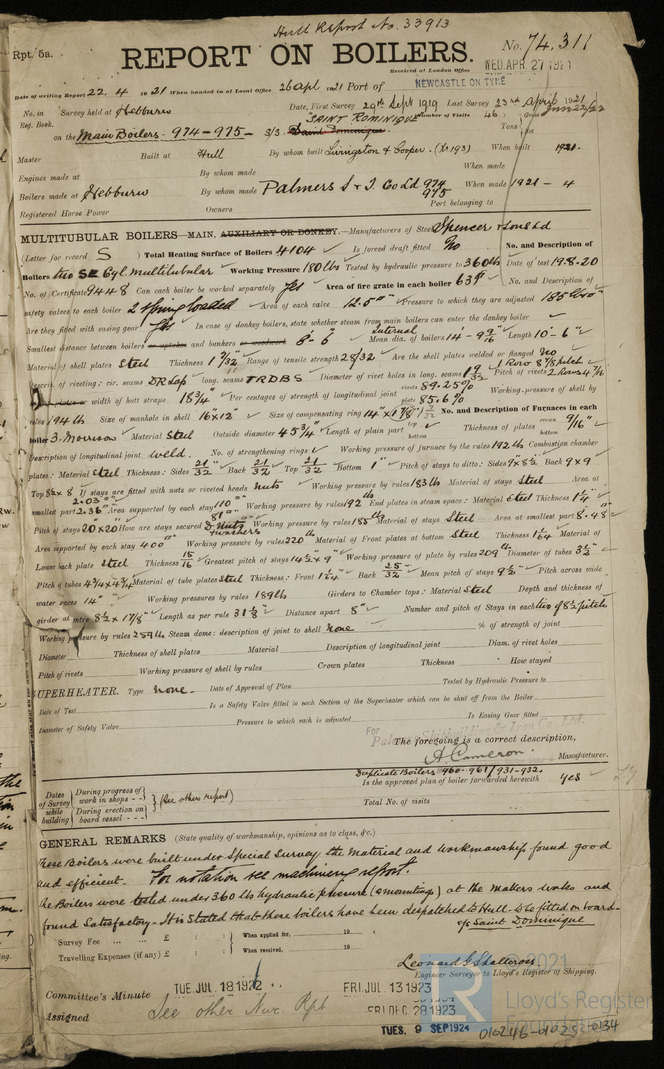 Hull Report No. 33913
Rpt. 5a.
REPORT ON BOILERS.
No. 74,311
Received at London Office WED. APR. 27 1921
Date of writing Report 22.4.1921 When handed in at Local Office 26 Apl 1921 Port of NEWCASTLE ON TYNE
No. in Reg. Book. Survey held at Hebburn Date, First Survey 29th Sept 1919 Last Survey 23rd April 1921
Number of Visits 46
on the Main Boilers - 974 - 975 - S/S. SAINT DOMINIQUE Tons
Master Built at Hull By whom built Livingston & Cooper. When built 1921.
Engines made at By whom made When made
Boilers made at Hebburn By whom made Palmers S & I. Co Ld 974 975 When made 1921 - 4
Registered Horse Power Owners Port belonging to
MULTITUBULAR BOILERS - MAIN, AUXILIARY OR DONKEY. - Manufacturers of Steel Spencer & Sons Ld
(Letter for record S) Total Heating Surface of Boilers 4104 Is forced draft fitted No No. and Description of
Boilers two SE Cyl multitubular Working Pressure 180 lbs Tested by hydraulic pressure to 360 lbs Date of test 19.8.20
No. of Certificate 9448 Can each boiler be worked separately Yes Area of fire grate in each boiler 63 No. and Description of
safety valves to each boiler 2 spring loaded Area of each valve 12.5 Pressure to which they are adjusted 185
Are they fitted with easing gear Yes In case of donkey boilers, state whether steam from main boilers can enter the donkey boiler
Smallest distance between boilers or uptakes and bunkers or woodwork 8'-6" Mean dia. of boilers internal 14'-9 9/16 Length 10'-6"
Material of shell plates Steel Thickness 1 7/32 Range of tensile strength 28/32 Are the shell plates welded or flanged No
Descrip. of riveting: cir. seams DR Lap long. seams TRDBS Diameter of rivet holes in long. seams 1 9/32 Pitch of rivets 1 Row 8 7/8 pitch 2 Rows 4 7/16
width of butt straps 18 3/4" Per centages of strength of longitudinal joint rivets 89.25% plate 85.6% Working pressure of shell by
rules 194 lbs Size of manhole in shell 16" x 12" Size of compensating ring No. and Description of Furnaces in each
boiler 3. Morrison Material Steel Outside diameter 45 3/4" Length of plain part top bottom Thickness of plates crown bottom 9/16"
Description of longitudinal joint weld. No. of strengthening rings Working pressure of furnace by the rules 192 lb Combustion chamber
plates: Material Steel Thickness: Sides 21/32 Back 21/32 Top 21/32 Bottom 1" Pitch of stays to ditto: Sides 9" x 8 1/2 Back 9 x 9
Top 8 1/2 x 8 If stays are fitted with nuts or riveted heads nuts Working pressure by rules 183 lb Material of stays Steel Area at
smallest part 2.03 2.36 Area supported by each stay 110 81 Working pressure by rules 192 lb End plates in steam space: Material Steel Thickness 1 1/4
Pitch of stays 20" x 20" How are stays secured D. Nuts & washers Working pressure by rules 185 lb Material of stays Steel Area at smallest part 8.48
Area supported by each stay 400 Working pressure by rules 220 lb Material of Front plates at bottom Steel Thickness 1 1/64 Material of
Lower back plate Steel Thickness 15/16 Greatest pitch of stays 14 1/2 x 9" Working pressure of plate by rules 209 lb Diameter of tubes 3 1/2"
Pitch of tubes 4 3/4 x 4 3/4 Material of tube plates Steel Thickness: Front 1 1/64 Back 25/32 Mean pitch of stays 9 1/2" Pitch across wide
water spaces 14" Working pressures by rules 189 lb Girders to Chamber tops: Material Steel Depth and thickness of
girder at centre 8 1/2 x 1 7/8" Length as per rule 31 1/8" Distance apart 8" Number and pitch of Stays in each two of 8 1/2 pitch
Working pressure by rules 259 lb Steam dome: description of joint to shell None % of strength of joint
Diameter Thickness of shell plates Material Description of longitudinal joint Diam. of rivet holes
Pitch of rivets Working pressure of shell by rules Crown plates Thickness How stayed
SUPERHEATER. Type none. Date of Approval of Plan Tested by Hydraulic Pressure to
Date of Test Is a Safety Valve fitted to each Section of the Superheater which can be shut off from the Boiler
Diameter of Safety Valve Pressure to which each is adjusted Is Easing Gear fitted
For Palmers Shipbuilding & Iron Co., Ltd.
The foregoing is a correct description,
A Cameron. Manufacturer.
Dates of Survey while building
During progress of work in shops - -
During erection on board vessel - - -
(See others report)
Duplicate Boilers 960-961/931-932.
Is the approved plan of boiler forwarded herewith Yes
Total No. of visits
GENERAL REMARKS (State quality of workmanship, opinions as to class, &c.)
These Boilers were built under Special Survey the Material and Workmanship found good
and efficient. For notation see machinery report.
The Boilers were tested under 360 lbs hydraulic pressure (& mountings) at the Makers works and
found Satisfactory - It is Stated that these boilers have been despatched to Hull - to be fitted on board -
s/s Saint Dominique
Survey Fee ... ... £ : : When applied for, 19
Travelling Expenses (if any) £ : : When received, 19
Leonard G Shallcross
Engineer Surveyor to Lloyd's Register of Shipping.
Committee's Minute TUE. JUL 18 1922 FRI. JUL 13 1923
FRI. DEC 28 1923
Assigned See other Nwc. Rpt
TUES. 9 SEP 1924
© 2021
Lloyd's Register
Foundation
010246-010252-0134